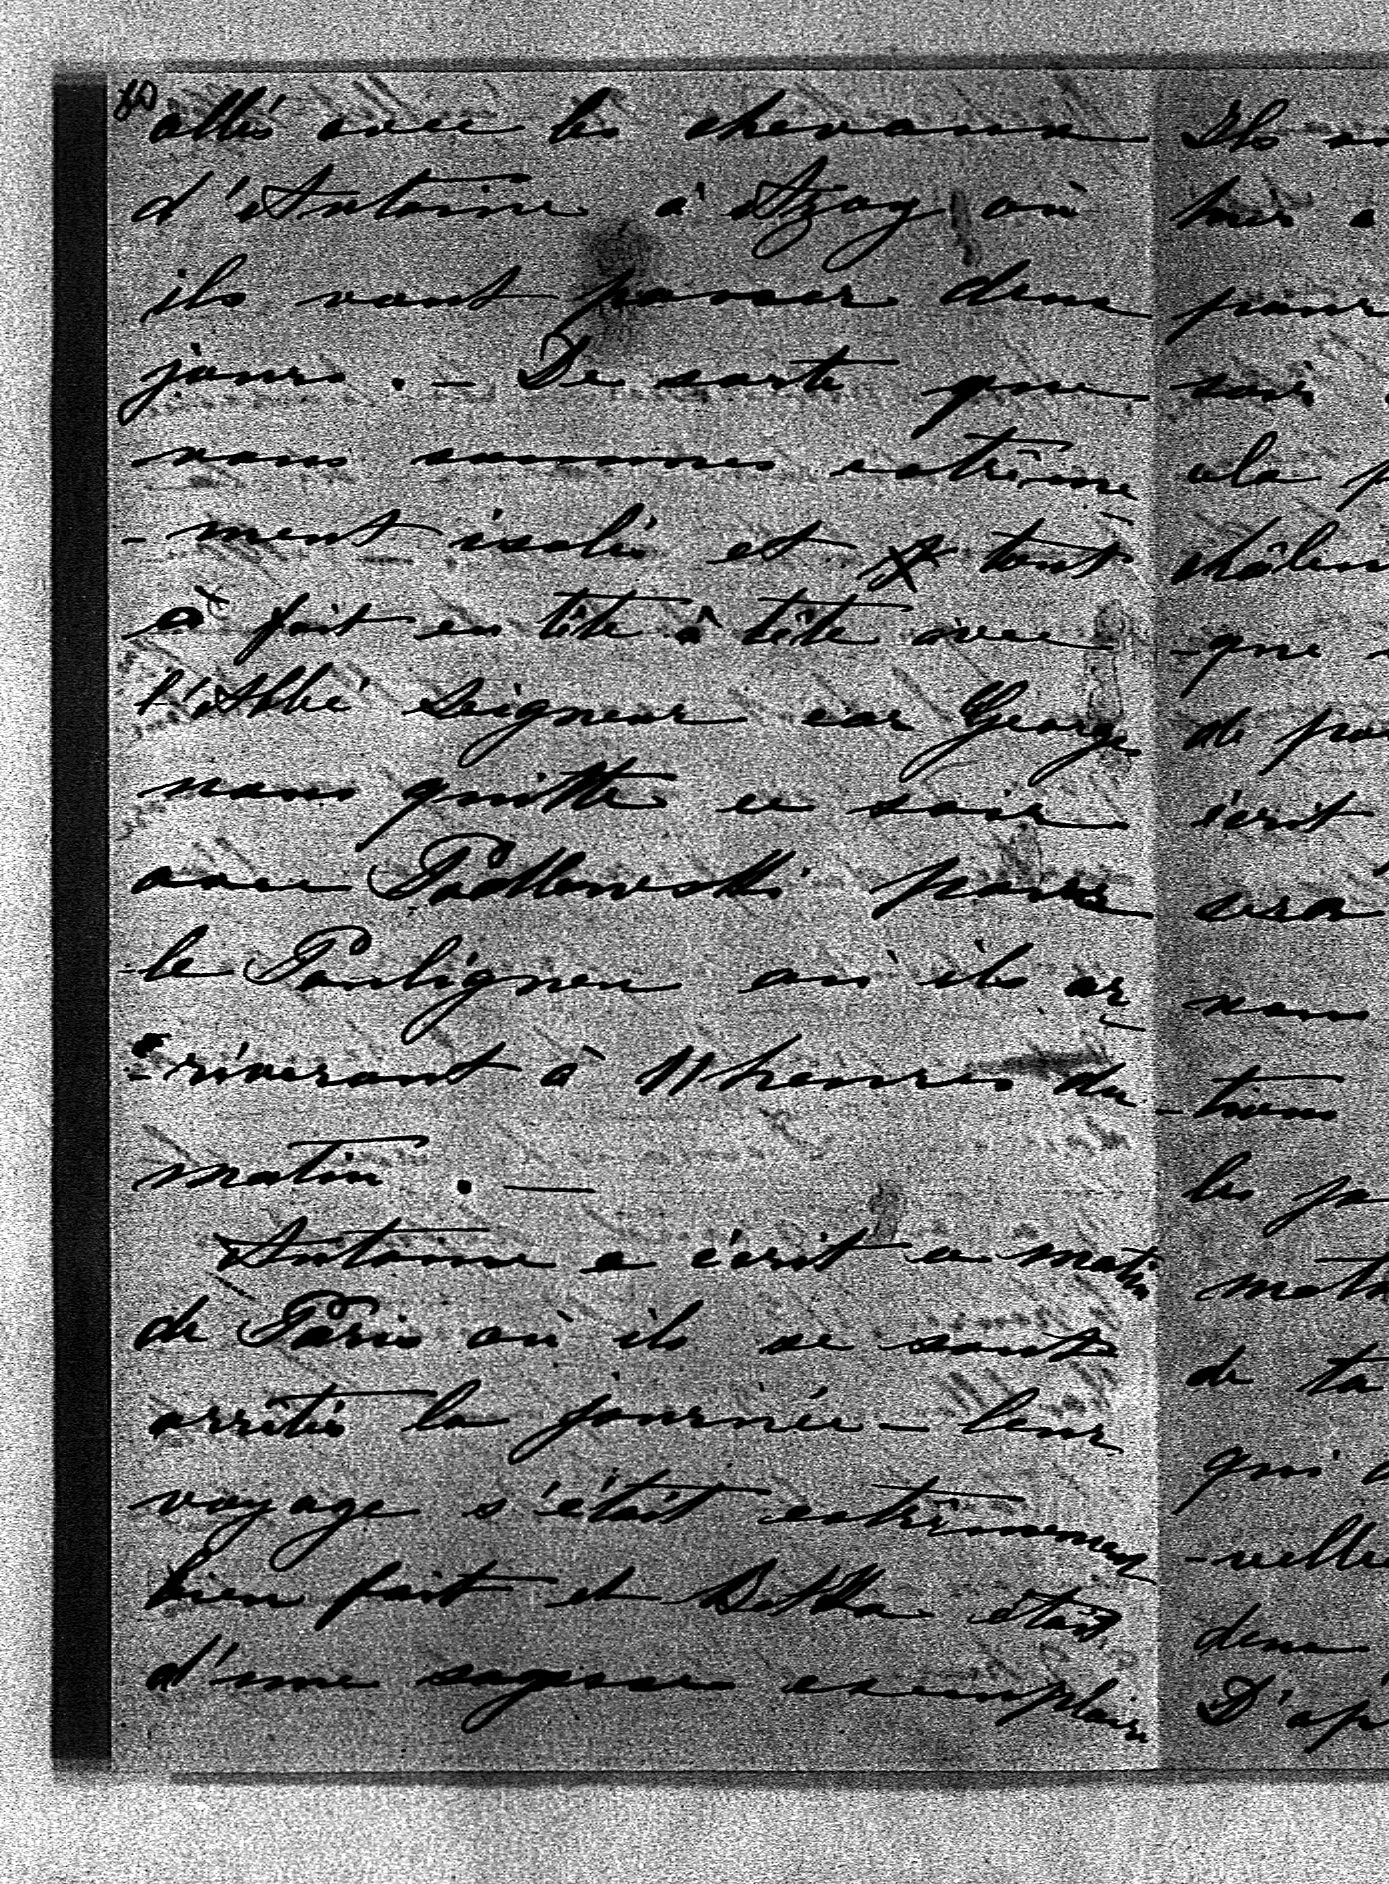 allés avec les chevaux
d'Antoine à Azay où
ils vont passer deux
jours. — De sorte que
nous sommes extrême
-ment isolés et tout
à fait en tête à tête avec
l'Abbé Seigneur car Georges
nous quitte ce soir
avec Podlowski pour
le Pouliguen où ils ar
-riveront à 11 heures du
matin. —
Antoine a écrit ce matin
de Paris où ils se sont
arrêtés la journée — leur
voyage s'était extrêmement
bien fait et Betka était
d'une sagesse exemplaire
Ils
pour
soir
de
écrit
sera
nous
-tions
les
de ta
qui
-velles
deux